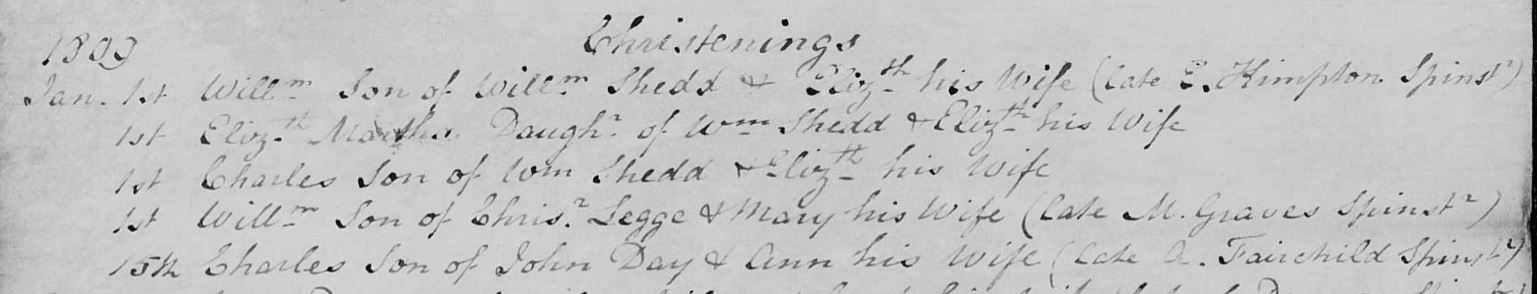 1809 Christenings
Jan. 1st Willm Son of Willm Shedd & Elizth his Wife (late E. Kimpton Spinstr)
1st Elizth Martha Daughr of Wm Shedd & Elizth his Wife
1st Charles Son of Wm Shedd & Elizth his Wife
1st Willm Son of Chrisr Legge & Mary his Wife (late M. Graves Spinstr)
15th Charles Son of John Day & Ann his Wife (late A. Fairchild Spinstr)